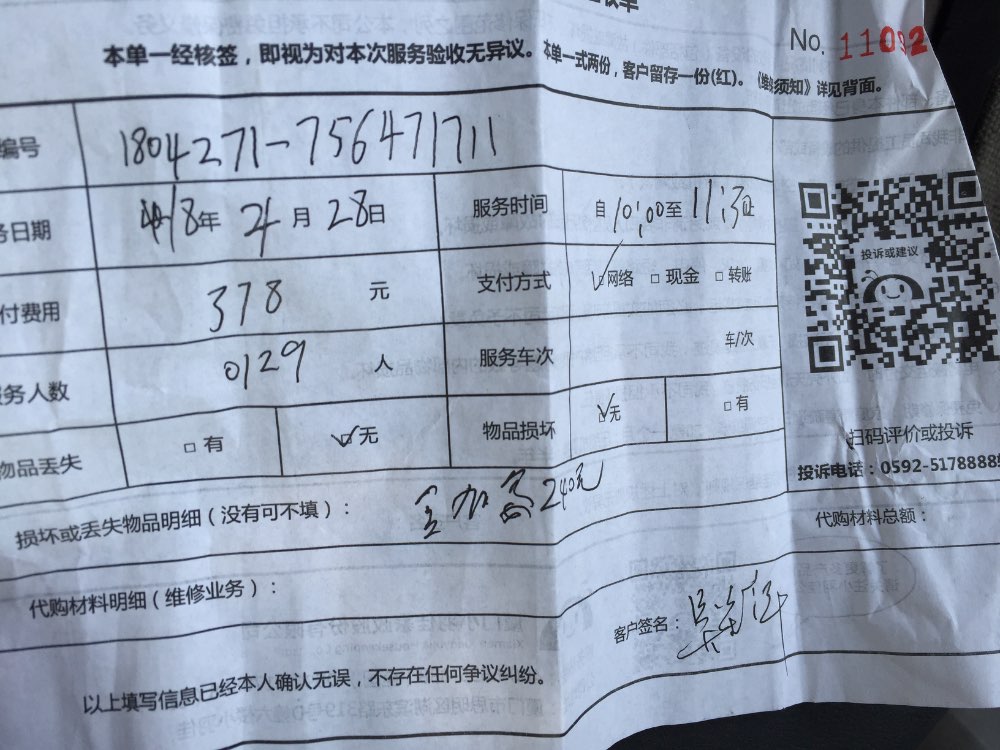 本单一经核签，即视为对本次服务验收无异议。本单一式两份，客户留存一份(红)。《维修须知》详见背面。
No. 11092
编号 1804271-756471711
务日期 18年 4月 28日 服务时间 自 10:00至 11:30止
付费用 378 元 支付方式 ☑网络 □现金 □转账
服务人数 0129 人 服务车次 车/次
物品丢失 □有 ☑无 物品损坏 ☑无 □有
投诉或建议
扫码评价或投诉
投诉电话：0592-5178888
损坏或丢失物品明细（没有可不填）： 240元
代购材料总额：
代购材料明细（维修业务）：
客户签名：
以上填写信息已经本人确认无误，不存在任何争议纠纷。